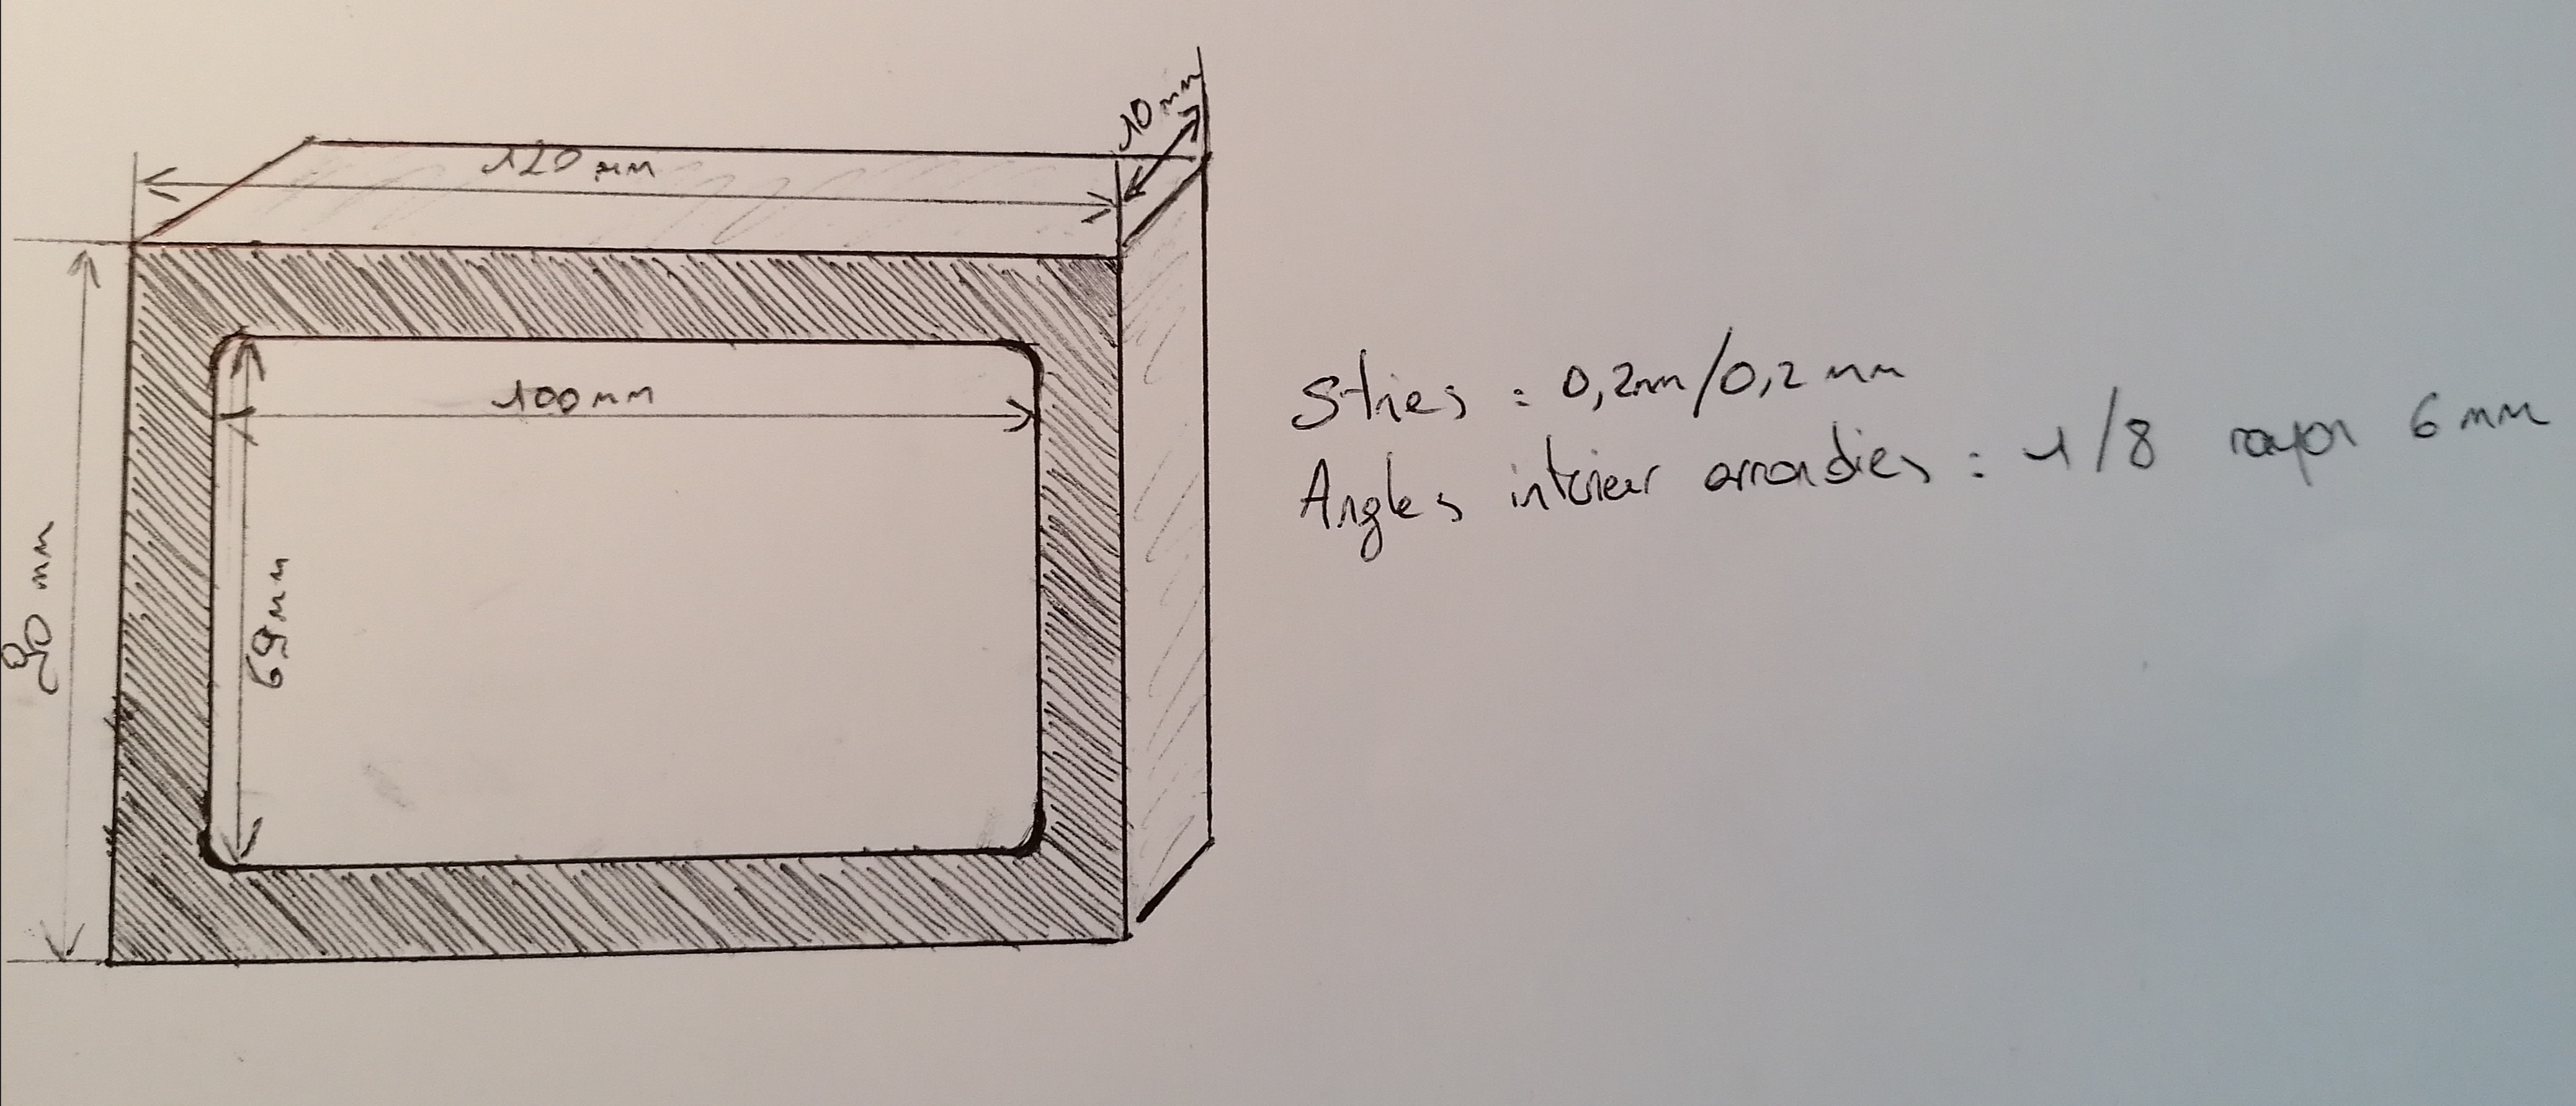 10 mm
120 mm
100 mm
90 mm
69 mm
Stries : 0,2mm/0,2 mm
Angles intérieur arrondies : 1/8 rayon 6 mm